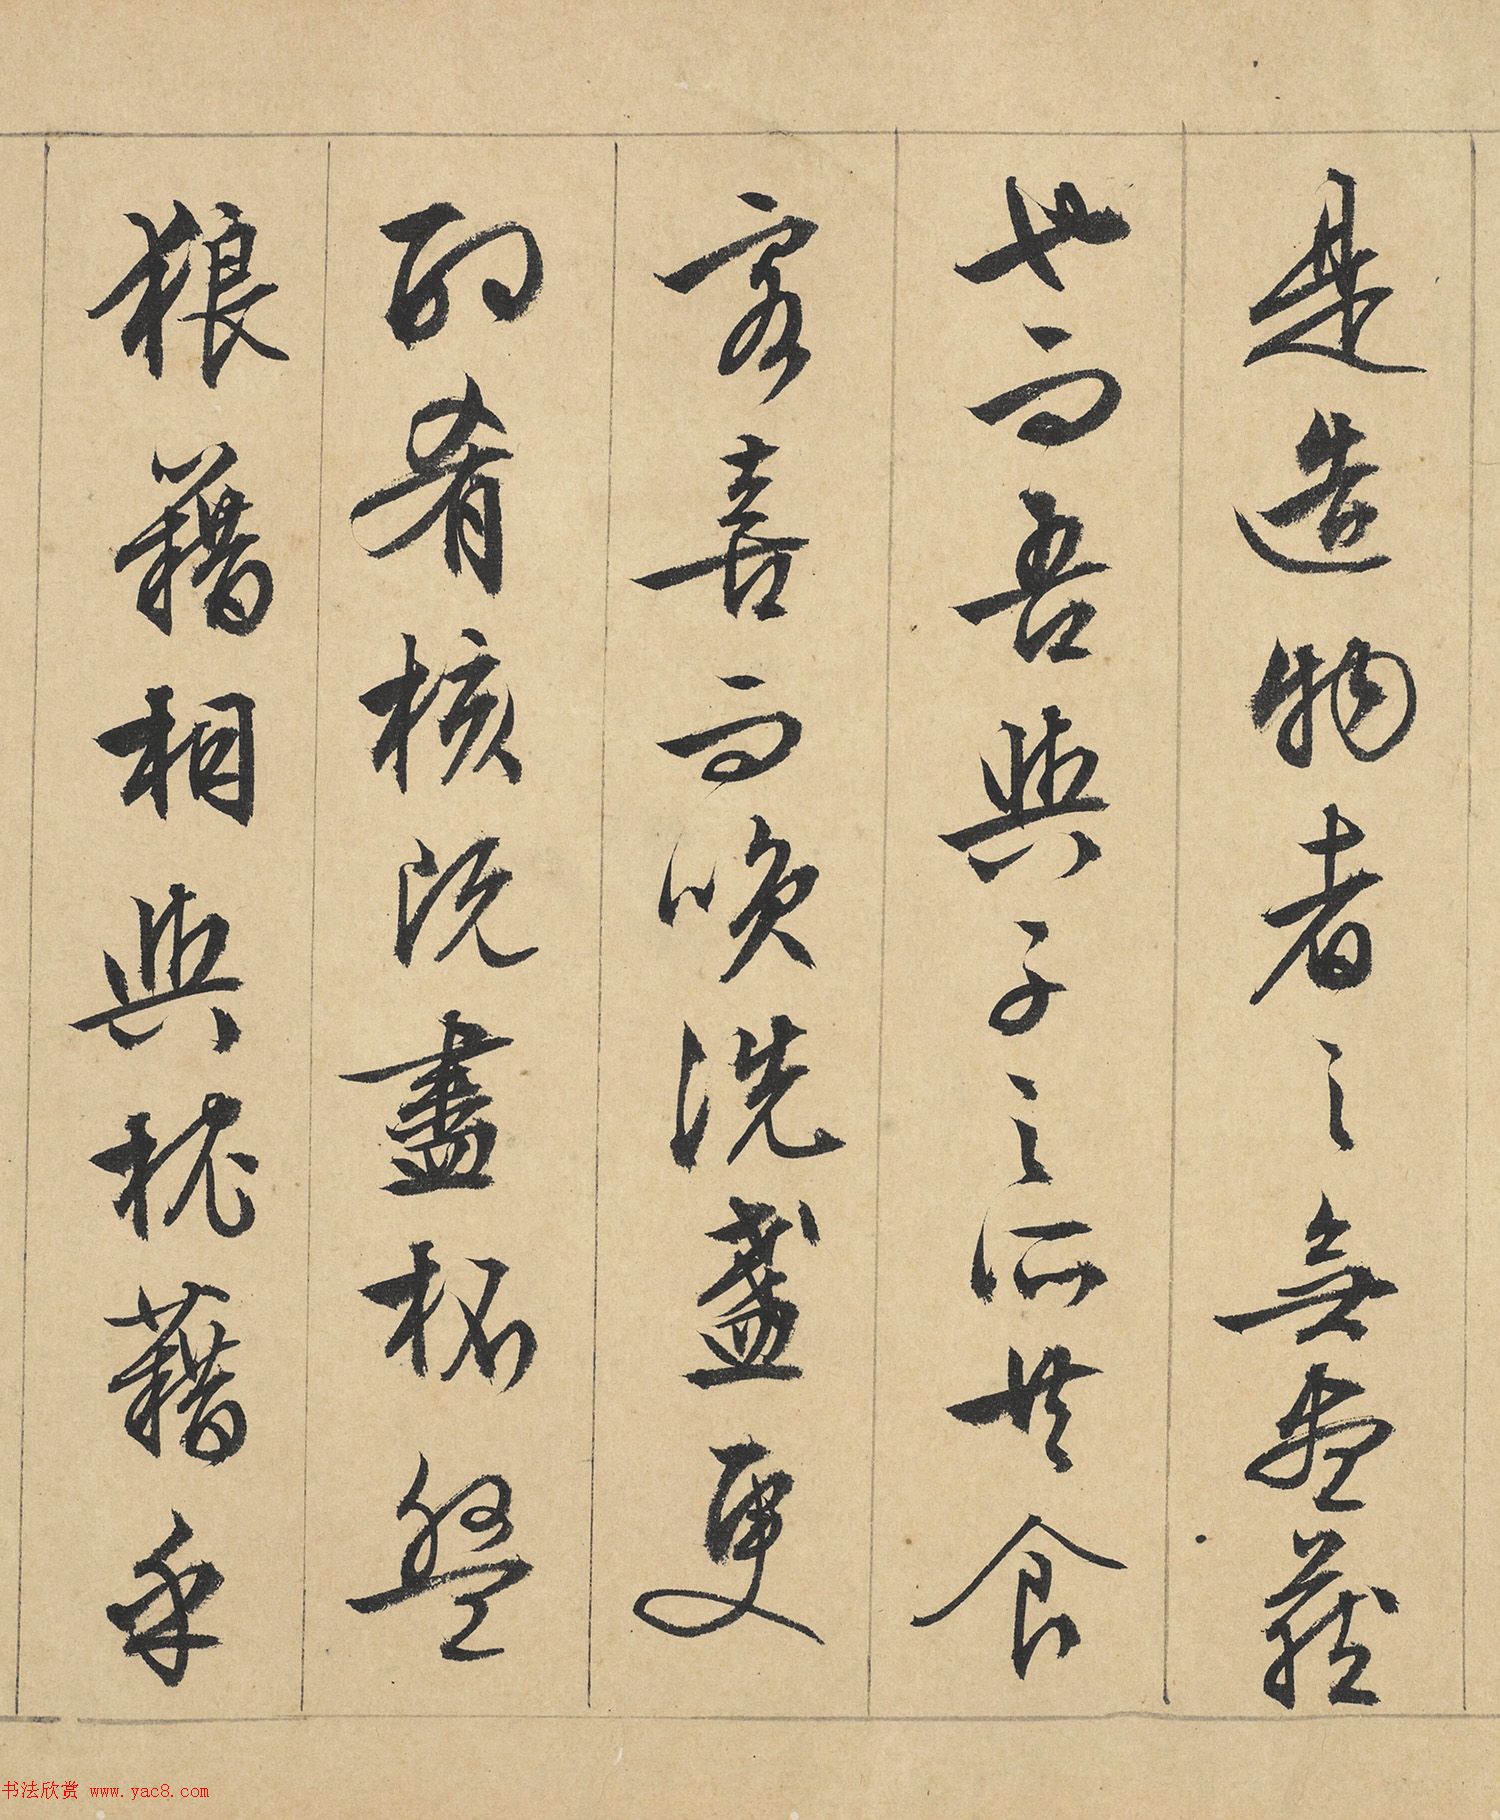 是造物者之無盡藏
也而吾與子之所共食
客喜而咲洗盞更
酌肴核既盡杯盤
狼藉相與枕藉乎
书法欣赏 www.yac8.com